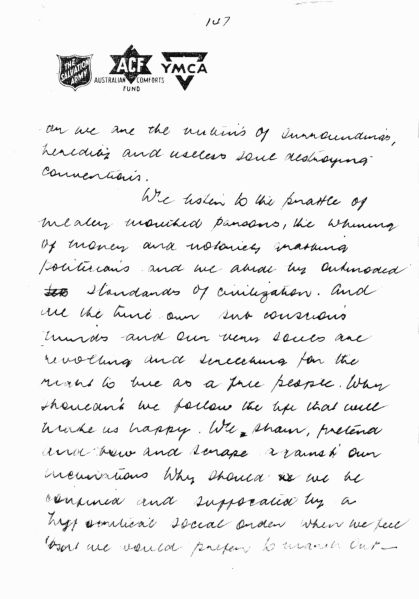 147
THE SALVATION ARMY
ACF
AUSTRALIAN COMFORTS FUND
YMCA
or we are the victims of surroundings,
heredity and useless soul destroying
conventions.
We listen to the prattle of
mealey mouthed parsons, the whining
of money and notoriety making
politicians and we abide by outmoded
standards of civilization. And
all the time our sub conscious
minds and our very souls are
revolting and screeching for the
right to live as a free people. Why
shouldn't we follow the life that will
make us happy. We sham, pretend
and bow and scrape against our
inclinations Why should we be
confined and suffocated by a
hypocritical social order when we feel
that we would prefer to march out—